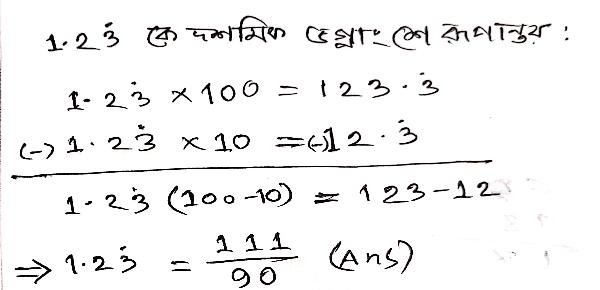 1.23̇ কে দশমিক ভগ্নাংশে রূপান্তর :
1.23̇ × 100 = 123.3̇
(-) 1.23̇ × 10 =(-)12.3̇
1.23̇ (100-10) = 123-12
⇒ 1.23̇ = 111/90 (Ans)